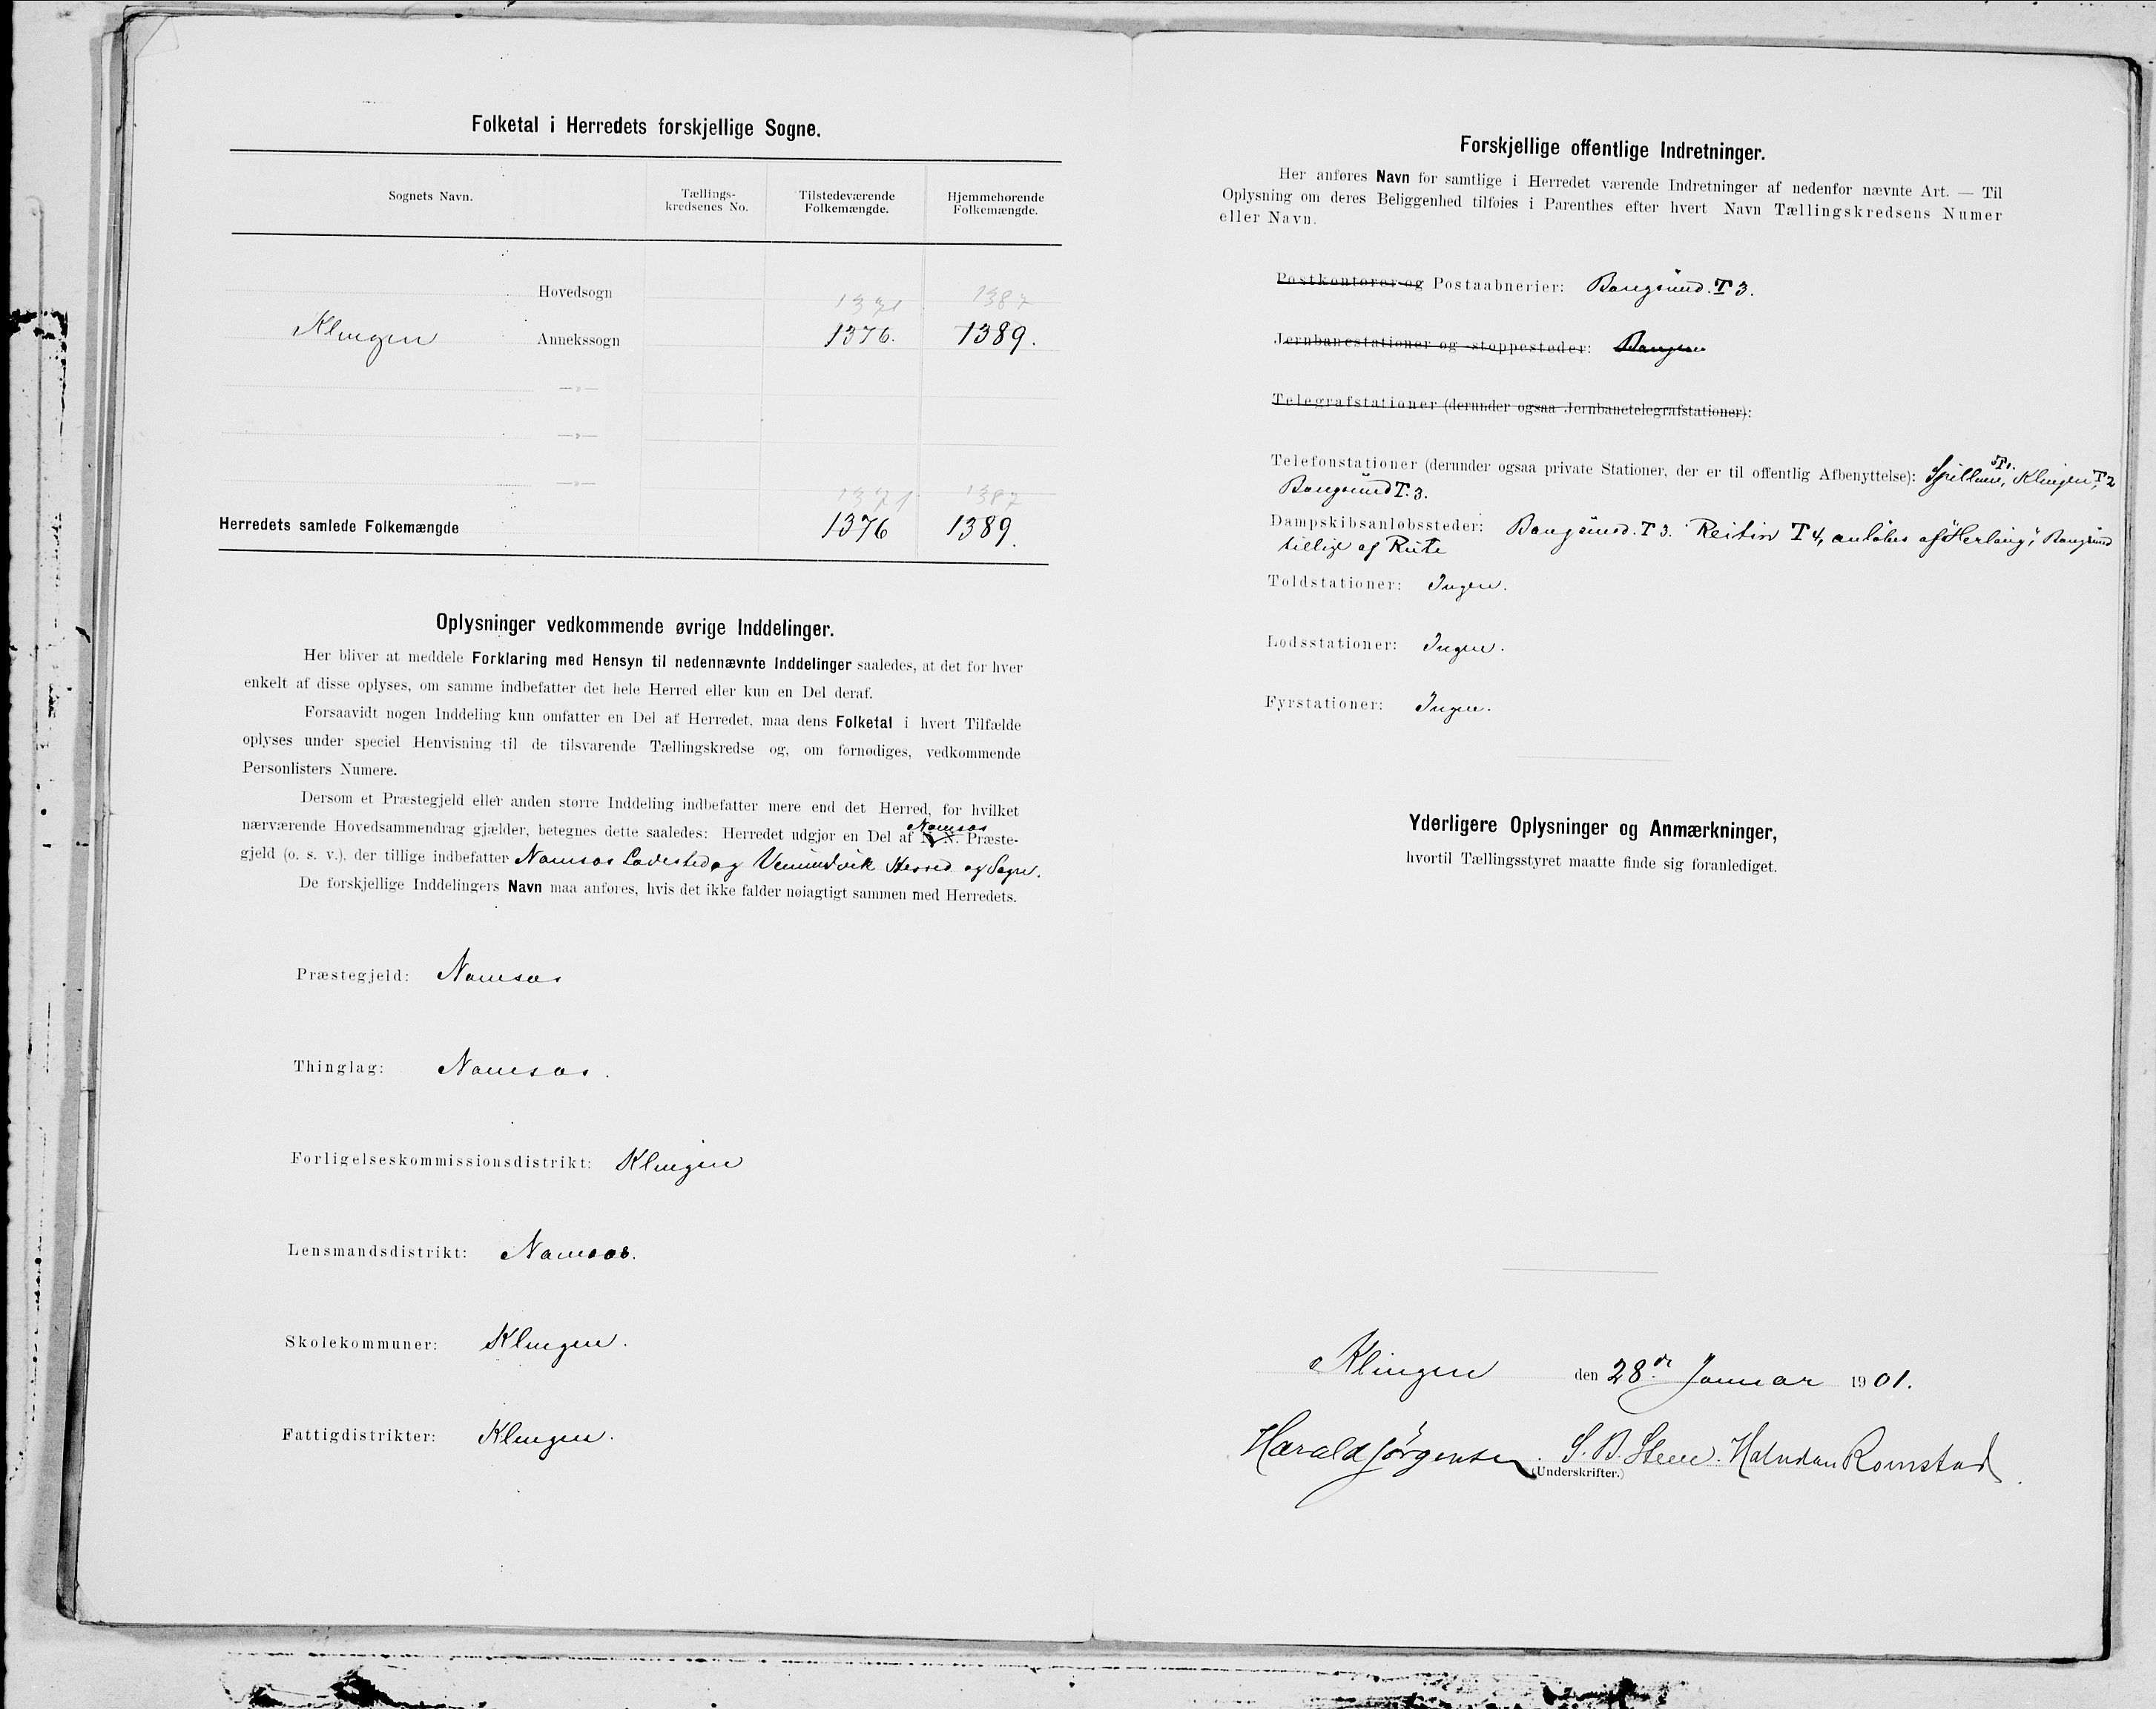 Folketal i Herredets forskjellige Sogne.
Sognets Navn.
Tællings-
kredsenes No.
Tilstedeværende
Folkemængde.
Hjemmehørende
Folkemængde.
Hovedsogn
1371 1387
Klingen Annekssogn 1376. 1389.
—»—
—»—
—»—
1371 1387
Herredets samlede Folkemængde 1376 1389.
Oplysninger vedkommende øvrige Inddelinger.
Her bliver at meddele Forklaring med Hensyn til nedennævnte Inddelinger saaledes, at det for hver
enkelt af disse oplyses, om samme indbefatter det hele Herred eller kun en Del deraf.
Forsaavidt nogen Inddeling kun omfatter en Del af Herredet, maa dens Folketal i hvert Tilfælde
oplyses under speciel Henvisning til de tilsvarende Tællingskredse og, om fornødiges, vedkommende
Personlisters Numere.
Dersom et Præstegjeld eller anden større Inddeling indbefatter mere end det Herred, for hvilket
nærværende Hovedsammendrag gjælder, betegnes dette saaledes: Herredet udgjør en Del af N. N. Namsos Præste-
gjeld (o. s. v.), der tillige indbefatter Namsos Ladested og Vemundvik Herred og Sogn.
De forskjellige Inddelingers Navn maa anføres, hvis det ikke falder nøiagtigt sammen med Herredets.
Præstegjeld: Namsos
Thinglag: Namsos.
Forligelseskommissionsdistrikt: Klingen
Lensmandsdistrikt: Namsos.
Skolekommuner: Klingen.
Fattigdistrikter: Klingen.
Forskjellige offentlige Indretninger.
Her anføres Navn for samtlige i Herredet værende Indretninger af nedenfor nævnte Art. — Til
Oplysning om deres Beliggenhed tilføies i Parenthes efter hvert Navn Tællingskredsens Numer
eller Navn.
Postkontorer og Postaabnerier: Bangsund. T 3.
Jernbanestationer og -stoppesteder: Bangsun
Telegrafstationer (derunder ogsaa Jernbanetelegrafstationer):
Telefonstationer (derunder ogsaa private Stationer, der er til offentlig Afbenyttelse): Spillum, T1. Klingen T2,
Bangsund T. 3.
Dampskibsanløbssteder: Bangsund. T 3. T 4, anløbes af "Herlaug", Bangsund
tillige af Rute
Toldstationer: Ingen.
Lodsstationer: Ingen.
Fyrstationer: Ingen.
Yderligere Oplysninger og Anmærkninger,
hvortil Tællingsstyret maatte finde sig foranlediget.
Klingen den 28de Januar 1901.
Harald Jørgensen. S. B. Steen. Halvdan Romstad
(Underskrifter.)